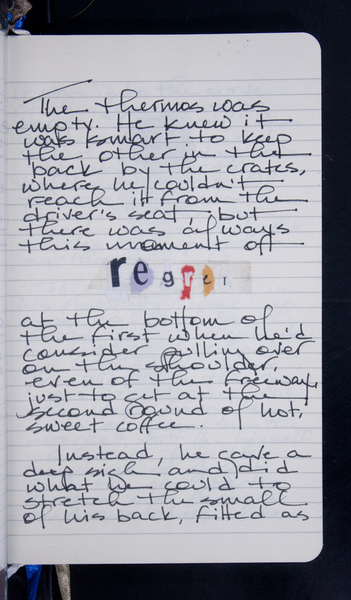 The thermos was
empty. He knew it
was smart to keep
the other in the
back by the crates,
where he couldn't
reach it from the
driver's seat, but
there was always
this moment of
regret
at the bottom of
the first when he'd
consider pulling over
on the shoulder,
even of the freeway,
just to get at the
second round of hot,
sweet coffee.
Instead, he gave a
deep sigh and did
what he could to
stretch the small
of his back, fitted as